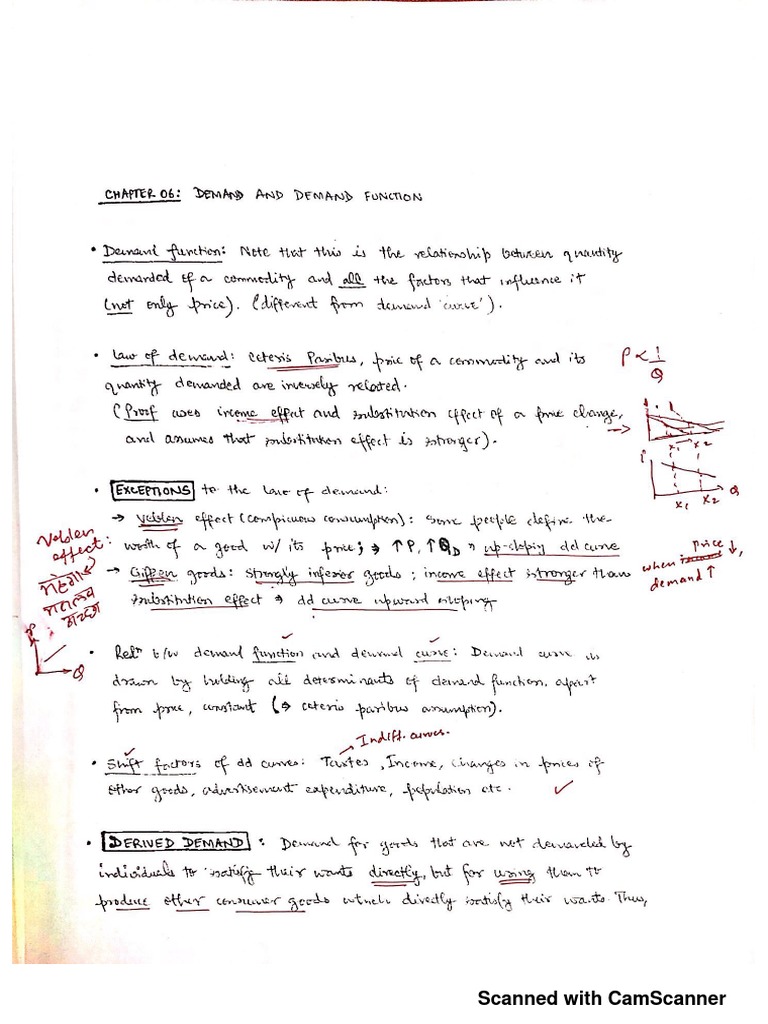 CHAPTER 06: DEMAND AND DEMAND FUNCTION
• Demand function: Note that this is the relationship between quantity
demanded of a commodity and all the factors that influence it
(not only price). (different from demand 'curve').
• Law of demand: Ceteris Paribus, price of a commodity and its
quantity demanded are inversely related.
(Proof uses income effect and substitution effect of a price change,
and assumes that substitution effect is stronger).
P ∝ 1/Q
→
x1 → x2
P
x1 x2 Q
• EXCEPTIONS to the law of demand:
→ Veblen effect (conspicuous consumption): Some people define the
worth of a good w/ its price; ⇒ ↑P, ↑QD ⇒ up-sloping dd curve
→ Giffen goods: strongly inferior goods; income effect stronger than
substitution effect ⇒ dd curve upward sloping
Veblen
effect:
महंगा
मतलब
अच्छा
P
Q
when price ↓,
demand ↑
• Reln b/w demand function and demand curve: Demand curve is
drawn by holding all determinants of demand function, apart
from price, constant (⇒ ceteris paribus assumption).
Indiff. curves.
• Shift factors of dd curves: Tastes, Income, changes in prices of
other goods, advertisement expenditure, population etc.
• DERIVED DEMAND : Demand for goods that are not demanded by
individuals to satisfy their wants directly, but for using them to
produce other consumer goods which directly satisfy their wants. Thus,
Scanned with CamScanner